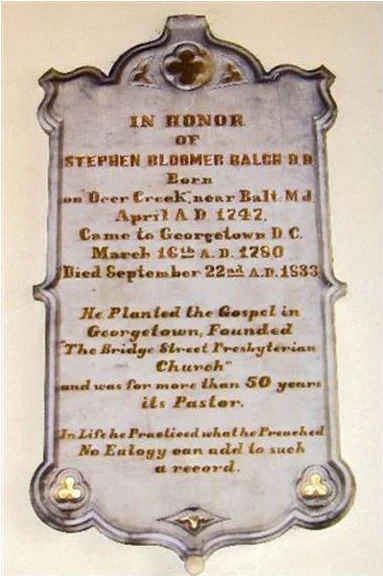 IN HONOR
OF
STEPHEN BLOOMER BALCH D.D
Born
on "Deer Creek", near Balt. Md
April A.D. 1747.
Came to Georgetown D.C.
March 16th A.D. 1780
Died September 22nd A.D. 1833
He Planted the Gospel in
Georgetown, Founded
"The Bridge Street Presbyterian
Church"
and was for more than 50 years
its Pastor.
In Life he Practiced what he Preached
No Eulogy can add to such
a record.